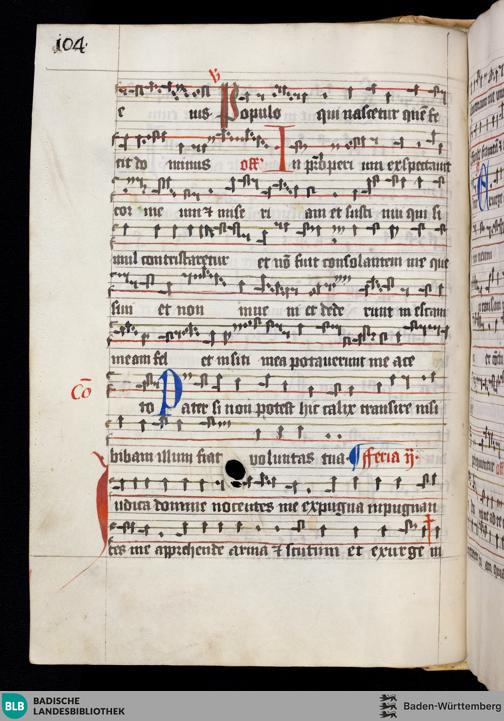 104
e ius V̄ Populo qui nascetur quē fe
cit do minus off' In ꝓperi um exspectauit
cor me um ⁊ mise ri am et susti nui qui si
mul contristaretur et nō fuit consolantem me que
siui et non inue ni et dede runt in escam
meam fel et in siti mea potauerunt me ace
to Cō Pater si non potest hic calix transire nisi
bibam illum fiat voluntas tua fferia ij
Iudica domine nocentes me expugna inpugnan
tes me apprehende arma ⁊ scutum et exurge in
BLB BADISCHE LANDESBIBLIOTHEK
Baden-Württemberg